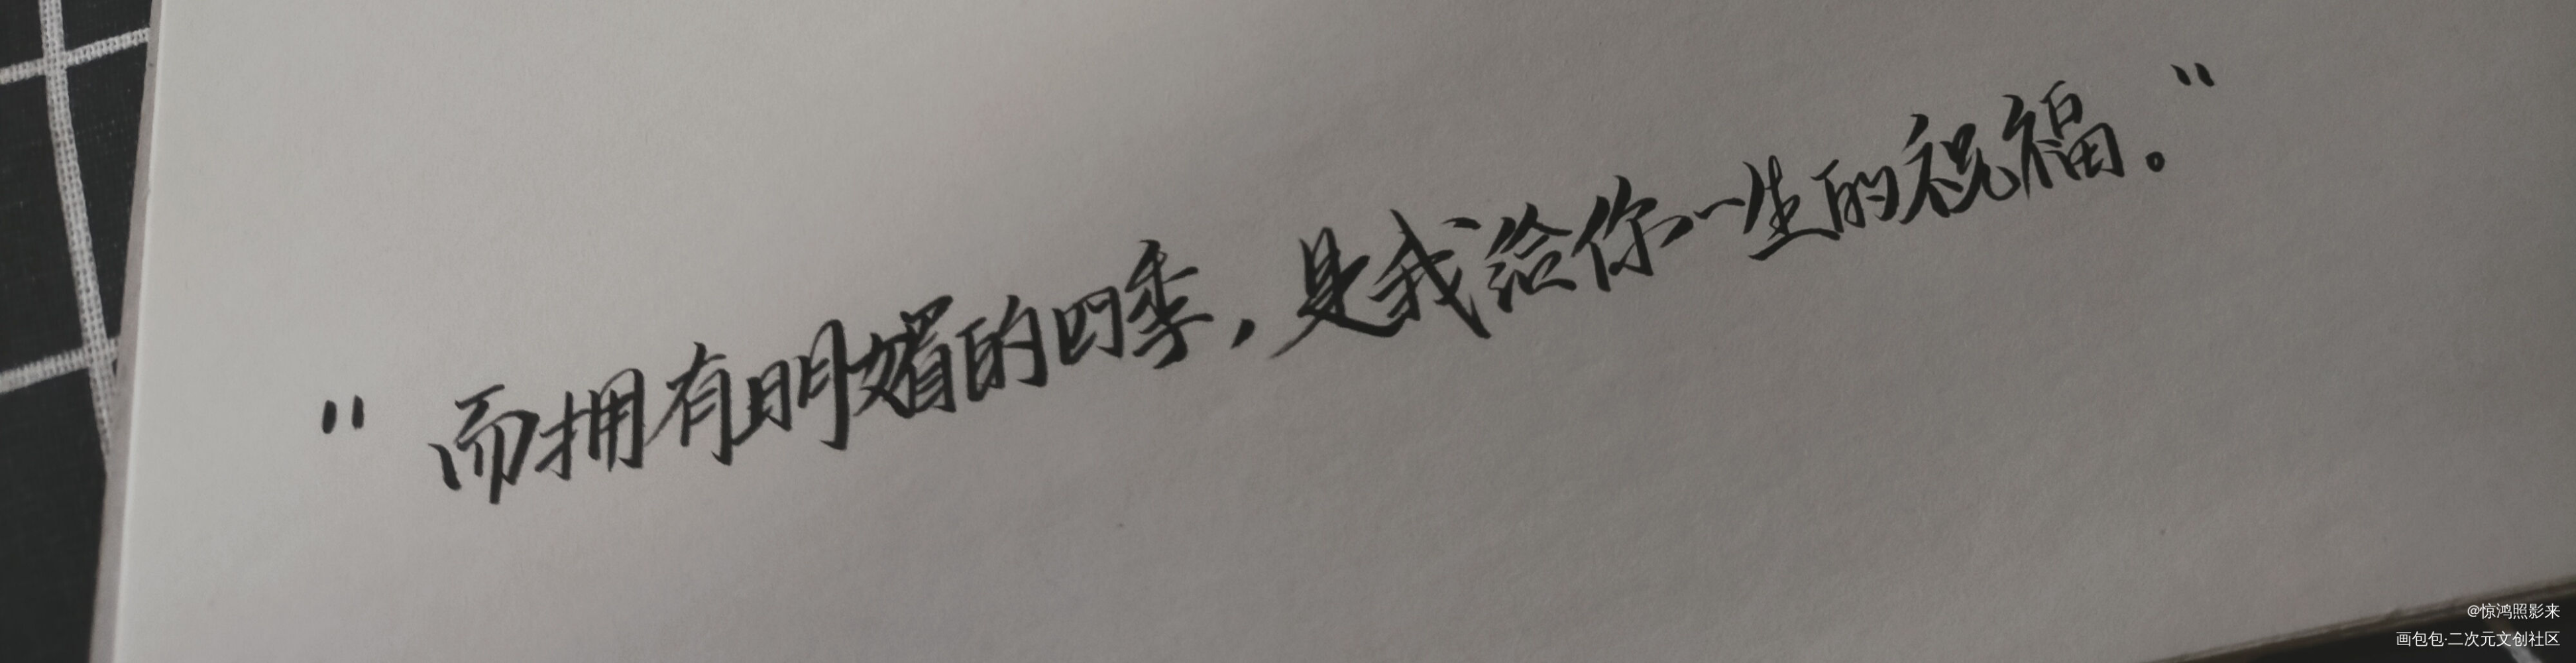 "而拥有明媚的四季,是我给你一生的祝福。"
@惊鸿照影来
画包包·二次元文创社区